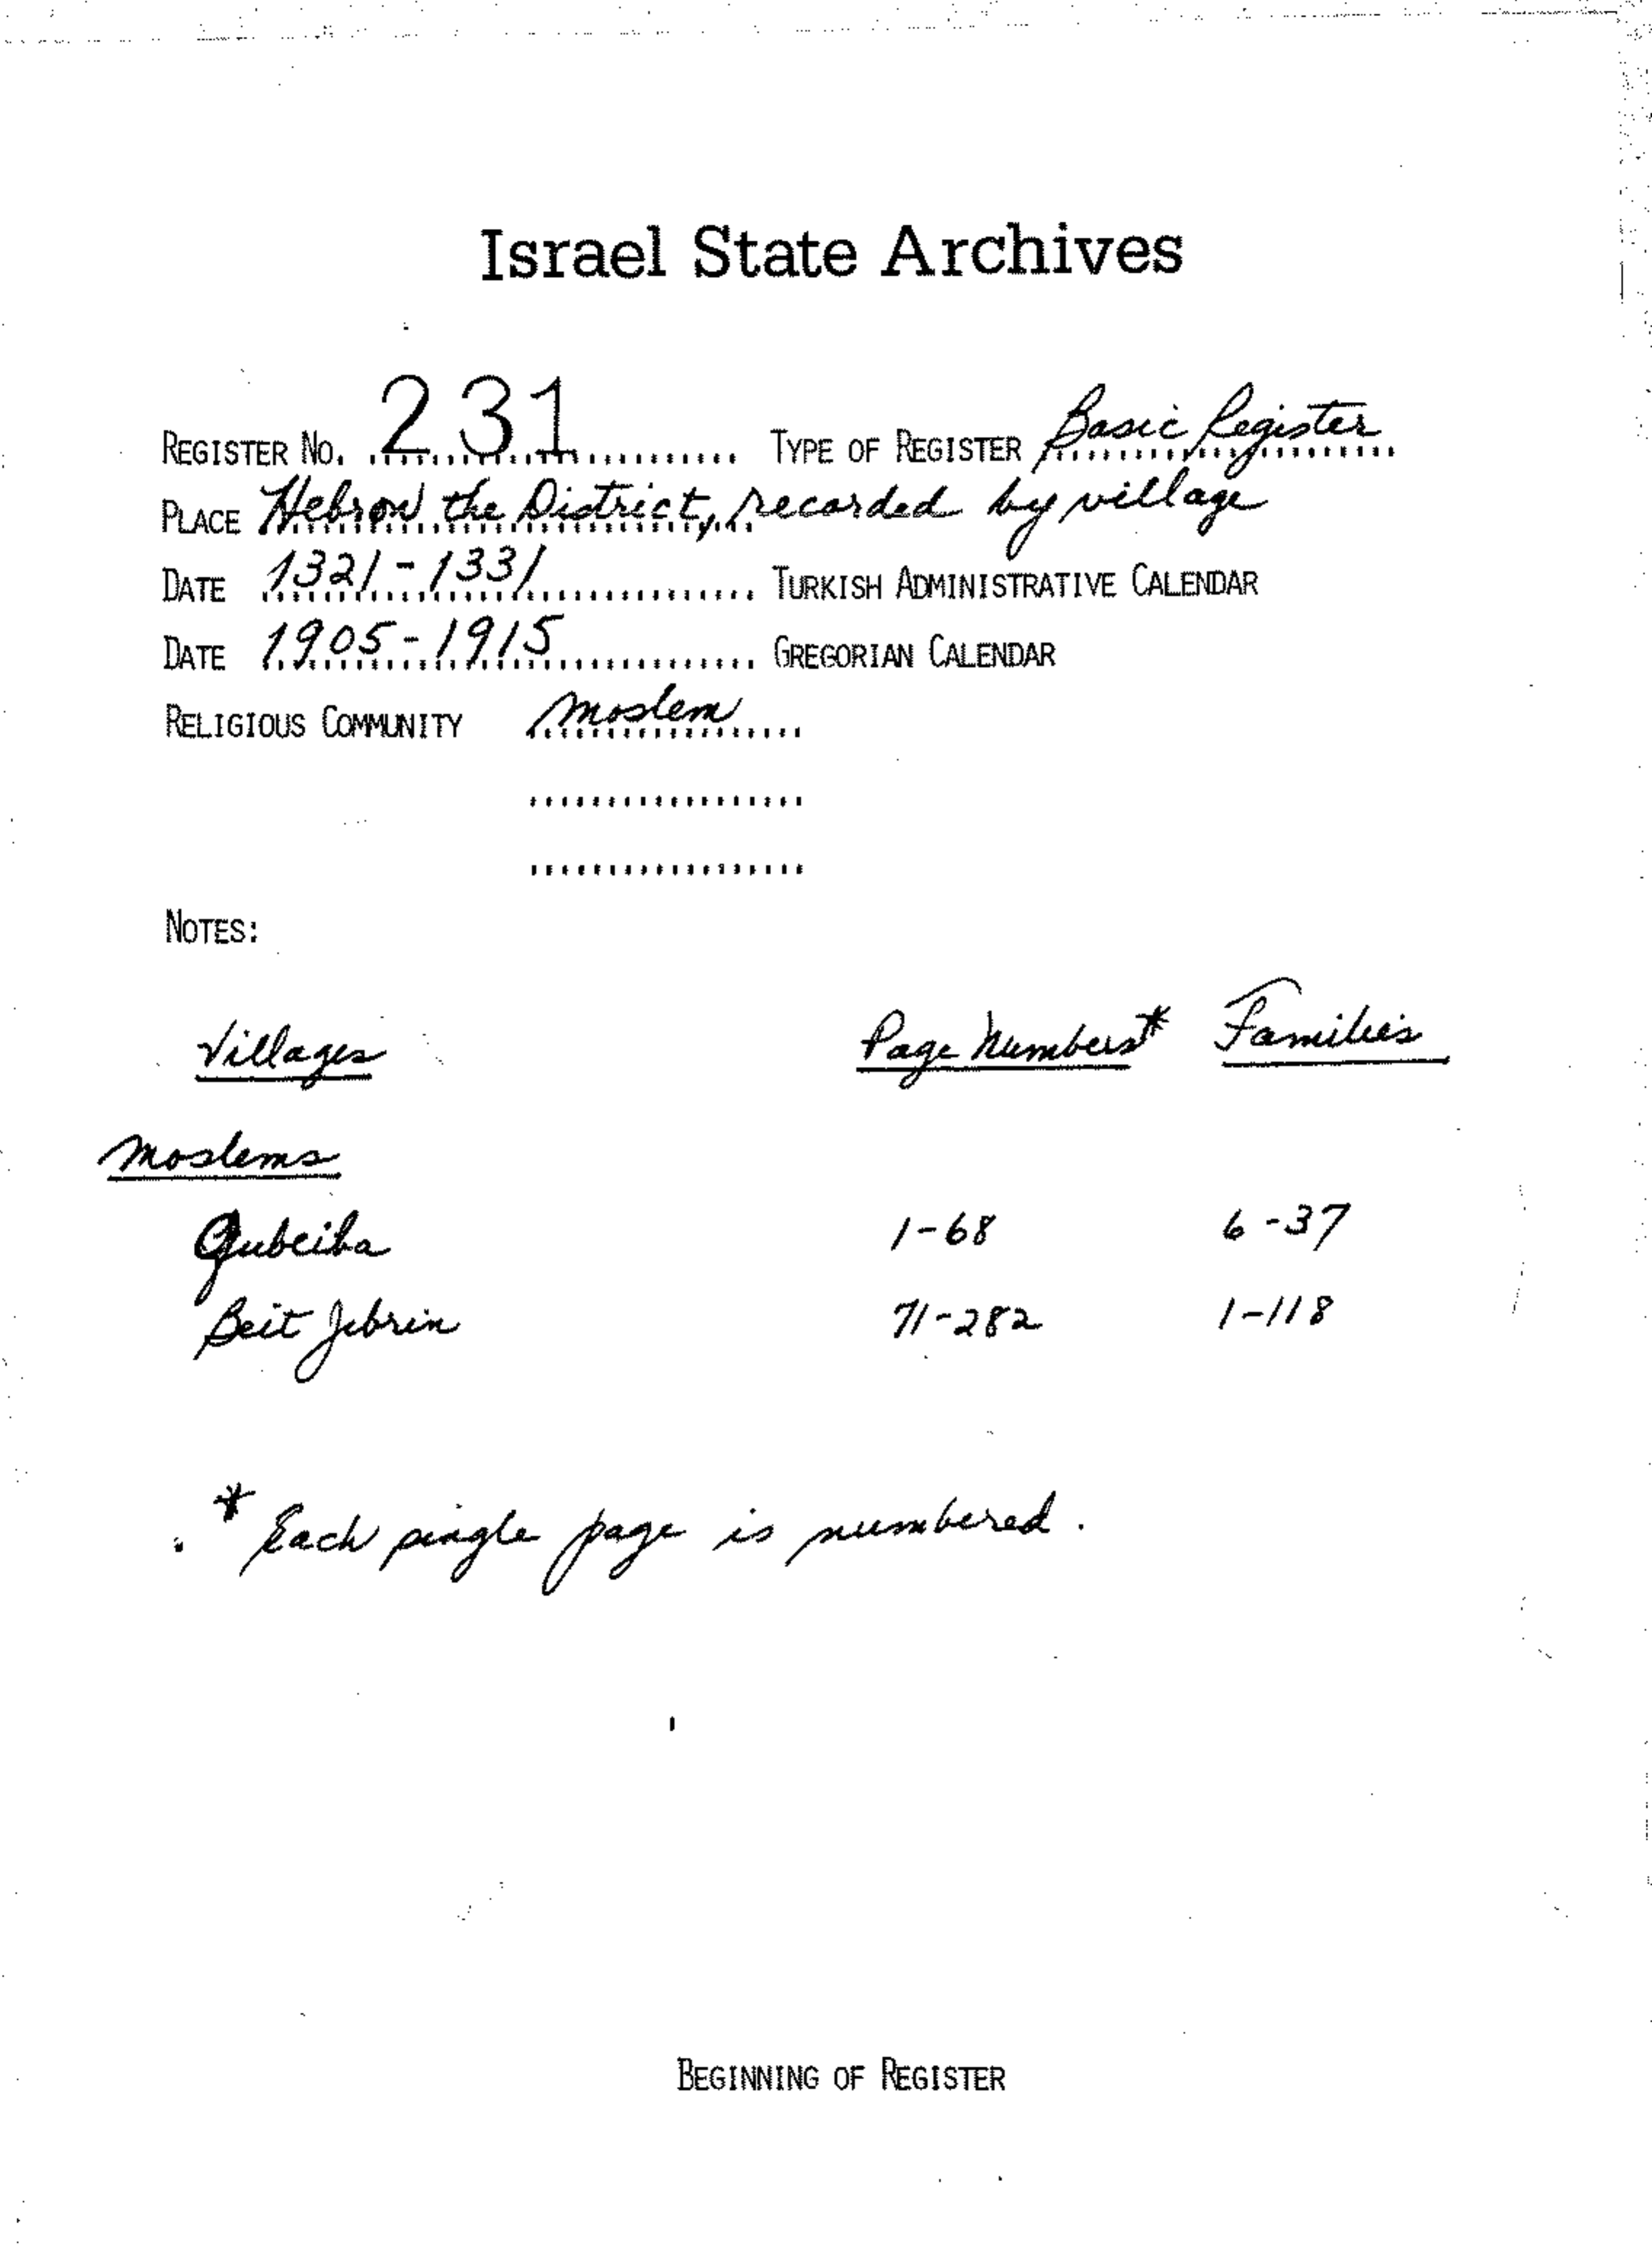 Israel State Archives
REGISTER NO. 231 TYPE OF REGISTER Basic Register
PLACE Hebron the District, recorded by village
DATE 1321-1331 TURKISH ADMINISTRATIVE CALENDAR
DATE 1905-1915 GREGORIAN CALENDAR
RELIGIOUS COMMUNITY Moslem
NOTES:
Villages Page Numbers* Families
Moslems
Qubeiba 1-68 6-37
Beit Jebrin 71-282 1-118
* Each single page is numbered.
BEGINNING OF REGISTER